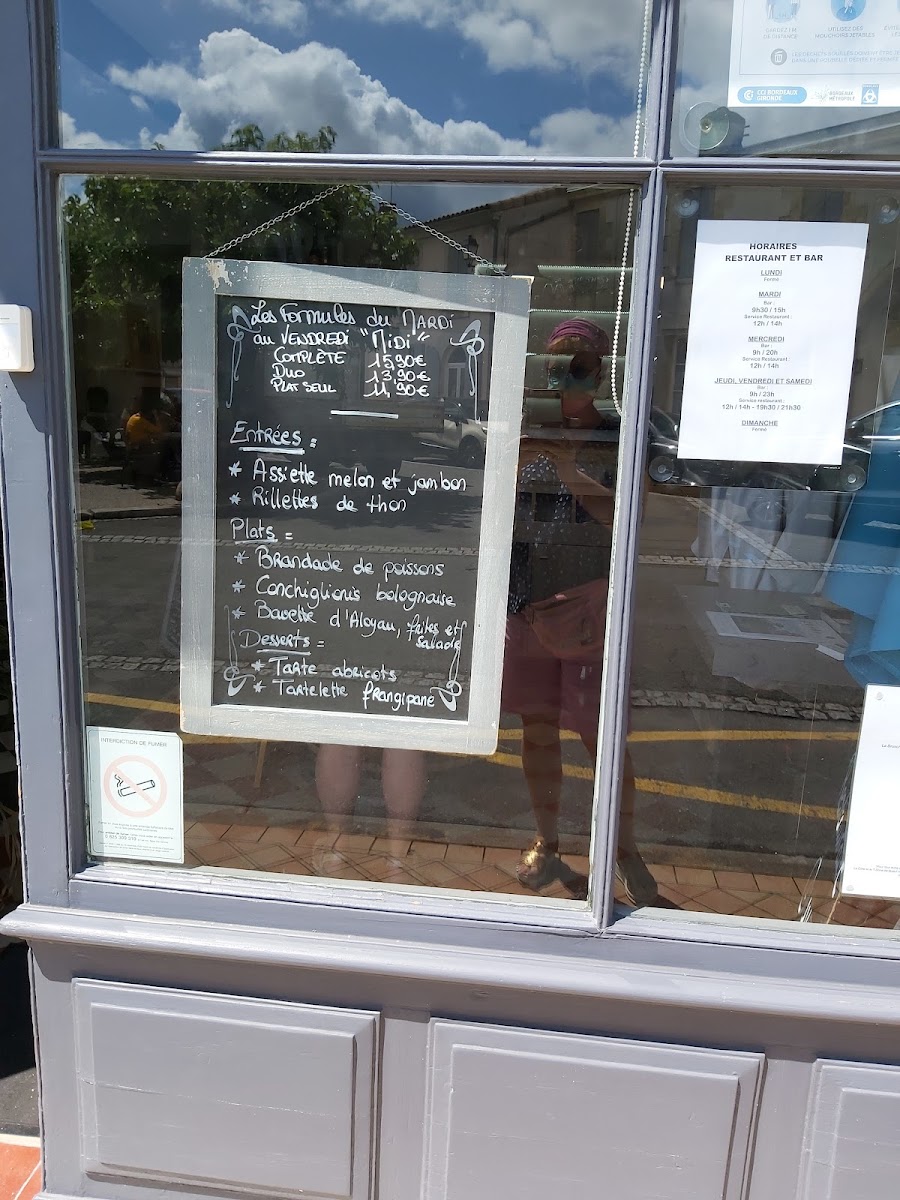 GARDEZ 1 M
DE DISTANCE
UTILISEZ DES
MOUCHOIRS JETABLES
CCI BORDEAUX
GIRONDE
BORDEAUX
MÉTROPOLE
Les Formules du MARDI
au VENDREDI "MIDI"
COMPLÈTE 15,90€
DUO 13,90€
PLAT SEUL 11,90€
Entrées :
* Assiette melon et jambon
* Rillettes de thon
Plats :
* Brandade de poissons
* Conchiglionis bolognaise
* Bavette d'Aloyau, frites et
salade
Desserts :
* Tarte abricots
* Tartelette frangipane
HORAIRES
RESTAURANT ET BAR
LUNDI
Fermé
MARDI
Bar :
9h30 / 15h
Service Restaurant :
12h / 14h
MERCREDI
Bar :
9h / 20h
Service Restaurant :
12h / 14h
JEUDI, VENDREDI ET SAMEDI
Bar :
9h / 23h
Service restaurant :
12h / 14h - 19h30 / 21h30
DIMANCHE
Fermé
INTERDICTION DE FUMER